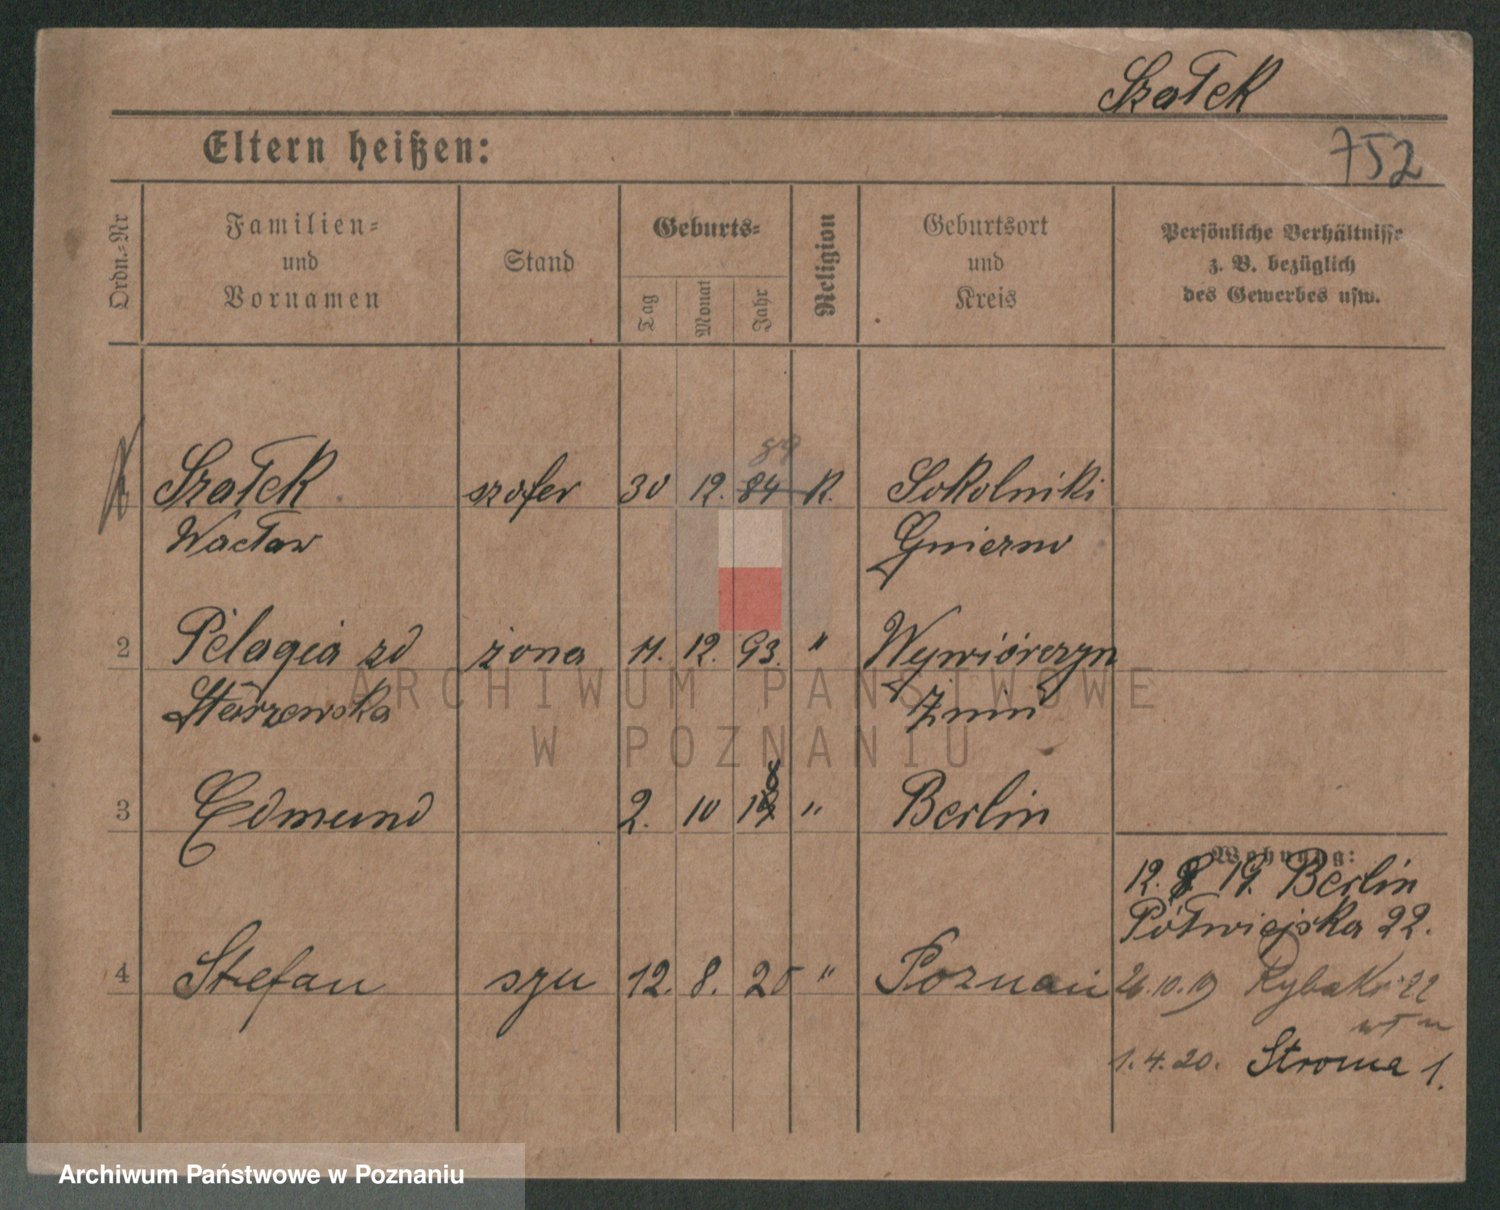 Szałek
Eltern heißen:
752
Ordn.-Nr
Familien-
und
Vornamen
Stand
Geburts-
Tag
Monat
Jahr
Religion
Geburtsort
und
Kreis
Persönliche Verhältnisse
z. B. bezüglich
des Gewerbes usw.
89
Szałek szofer 30 12. 84 K. Sokolniki
Wacław Gniezno
2 Pelagia zd żona 11. 12. 93. " Wywiórczyn
Starszewska Żnin
3 Edmund 2. 10 18 " Berlin
Wohnung:
12. 8 19. Berlin
Półwiejska 22.
4 Stefan syn 12. 8. 20 " Poznań
26.10.19 Rybaki 22
1.4.20. Stroma 1.
ARCHIWUM PAŃSTWOWE
W POZNANIU
Archiwum Państwowe w Poznaniu